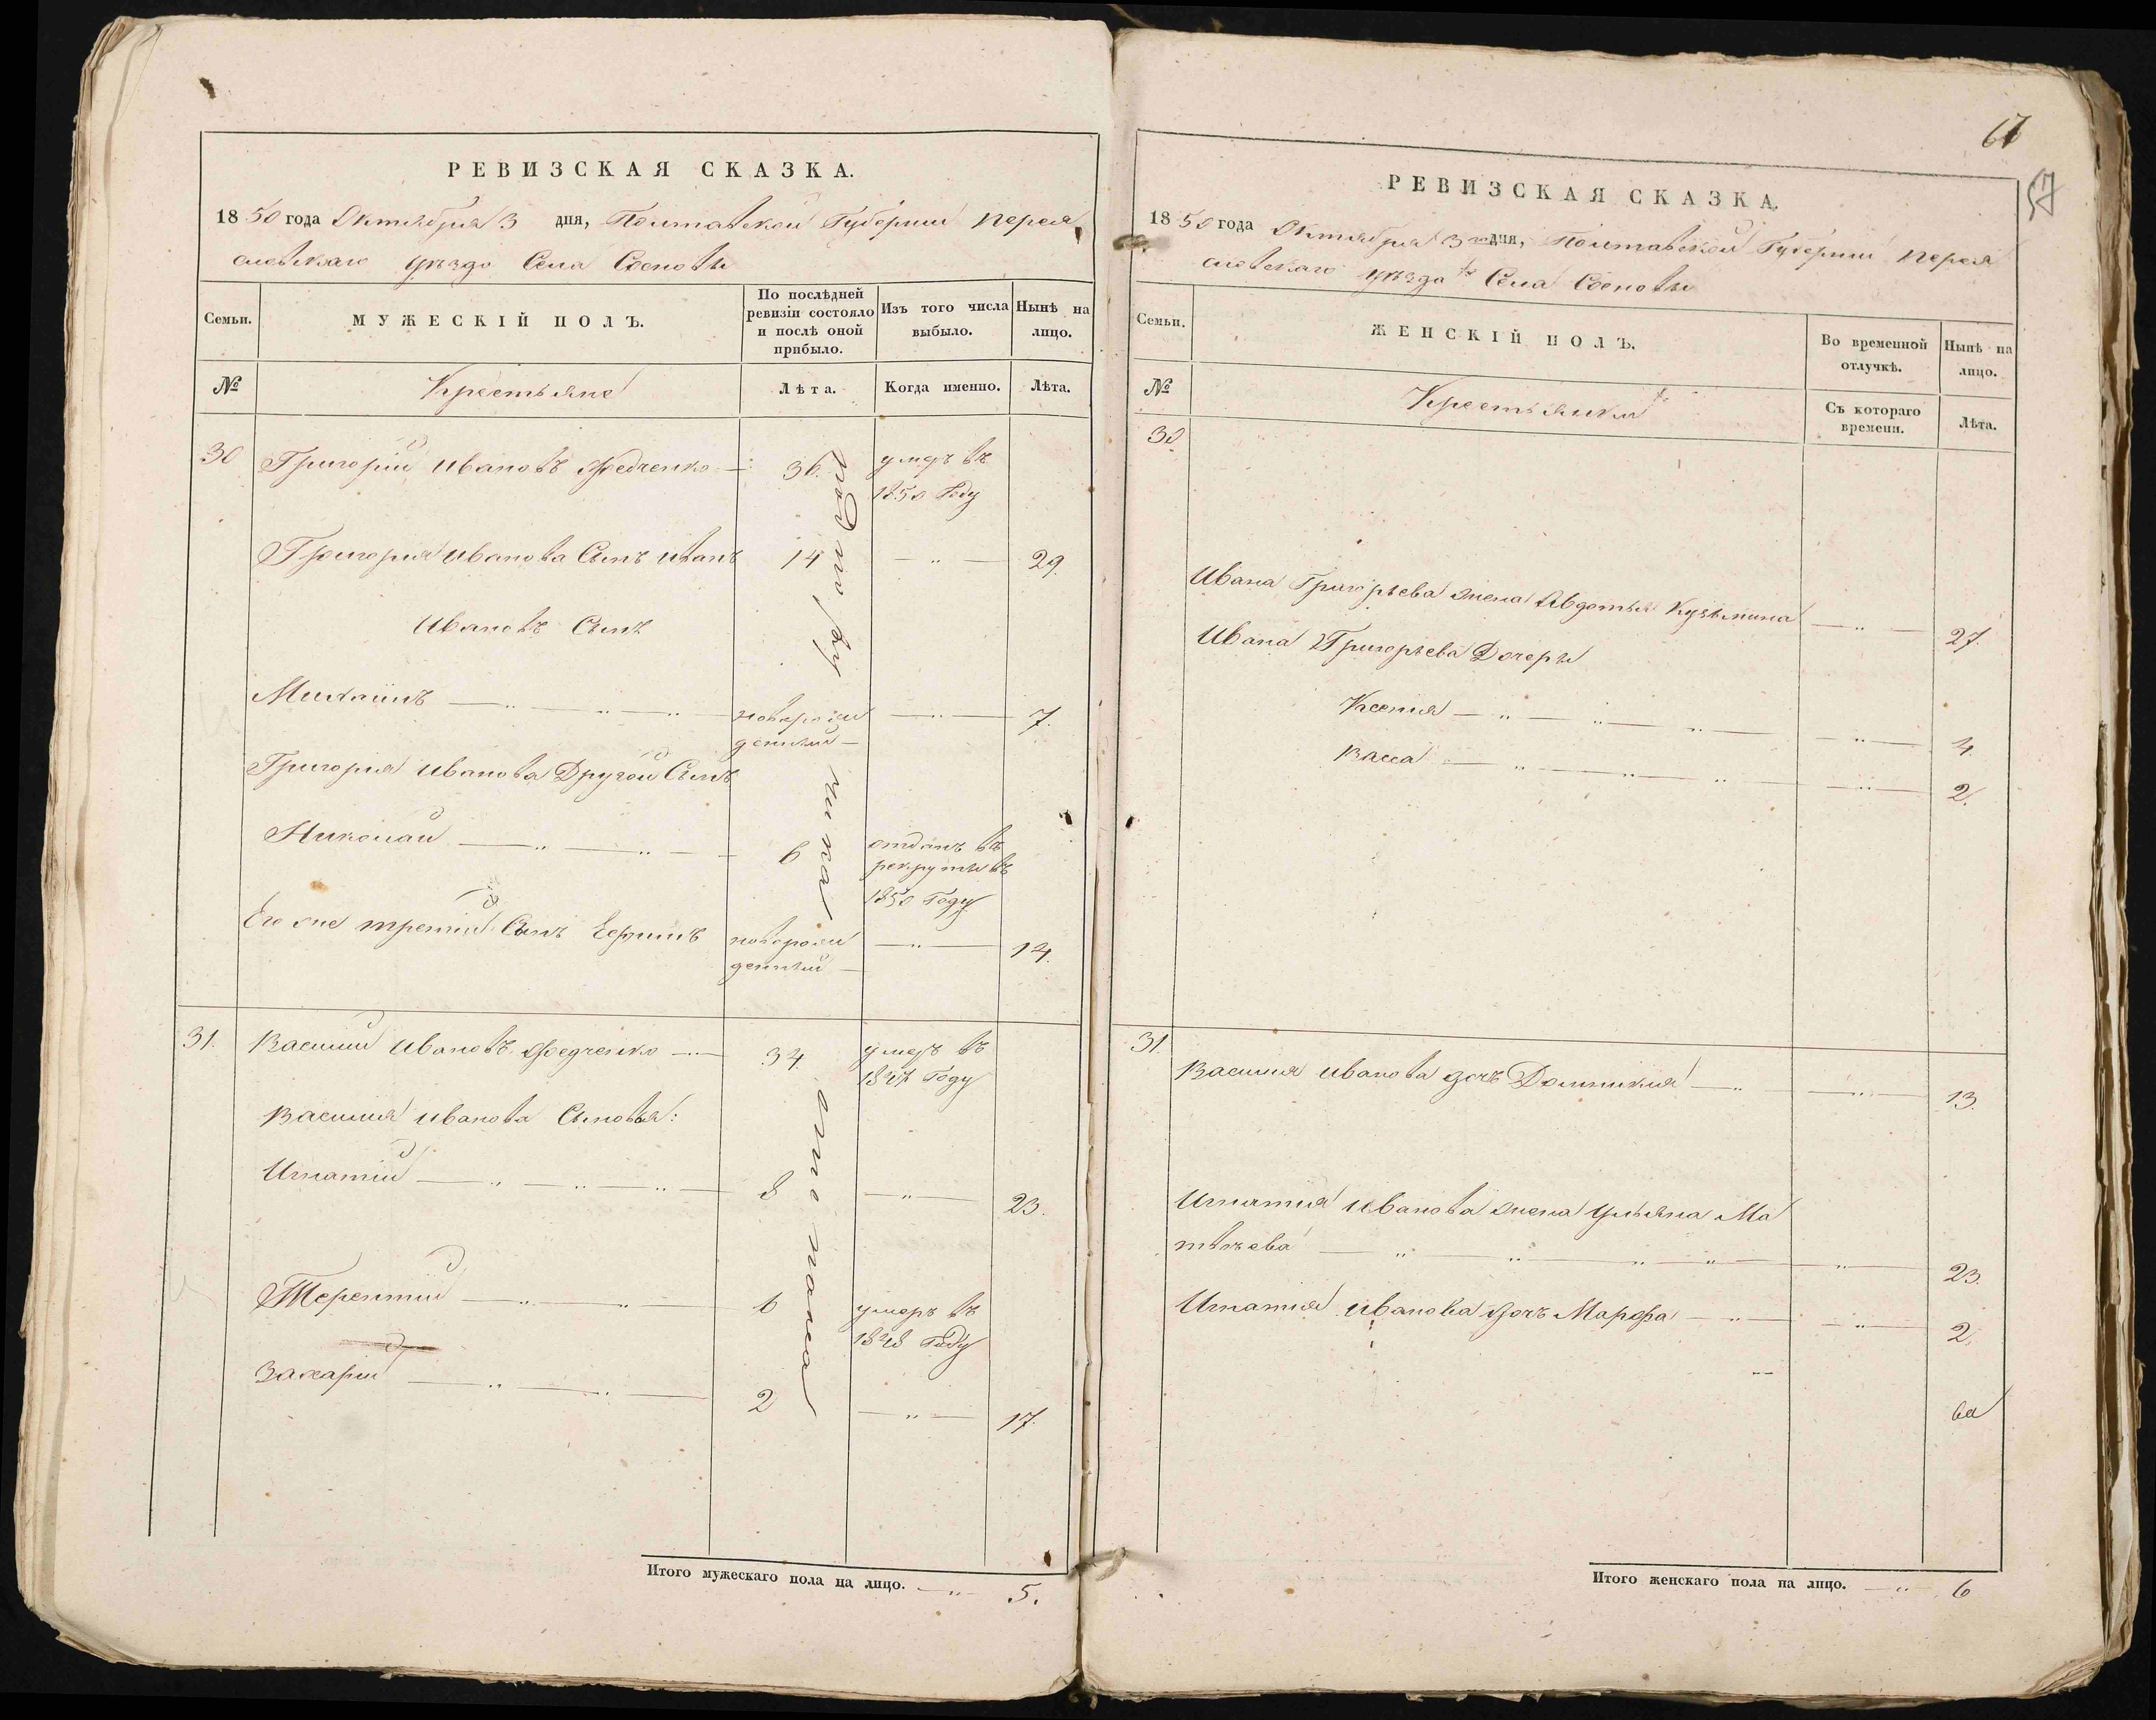 РЕВИЗСКАЯ СКАЗКА.
1850 года Октября 3 дня, Полтавской Губернии Перея
славскаго уѣзда Села Сосновы
Семьи.
МУЖЕСКІЙ ПОЛЪ.
По послѣдней
ревизіи состояло
и послѣ оной
прибыло.
Изъ того числа
выбыло.
Нынѣ на
лицо.
№
Крестьяне
Лѣта.
Когда именно.
Лѣта.
30 Григорій Ивановъ Федченко 36. умеръ въ
1850 Году
Григорія Иванова Сынъ Иванъ 14 — " — 29.
Ивановъ Сынъ
Михаилъ новорож
денный — " — 7.
Григорія Иванова Другой Сынъ
Николай 6 отданъ въ
рекруты въ
1850 Году
Его же третій Сынъ Ефимъ новорож
денный — " — 14.
31. Василій Ивановъ Федченко 34. умеръ въ
1847 Году
Василія Иванова Сыновья:
Игнатій 8 — " — 23.
Терентій 6 умеръ въ
1848 Году
Захарій 2 — " — 17.
Итого мужескаго пола на лицо. — " — 5.
67
57
РЕВИЗСКАЯ СКАЗКА.
1850 года Октября 3 дня, Полтавской Губерніи Перея
славскаго уѣзда Села Сосновы
Семьи.
ЖЕНСКІЙ ПОЛЪ.
Во временной
отлучкѣ.
Нынѣ на
лицо.
№
Крестьянки
Съ котораго
времени.
Лѣта.
30
Ивана Григорьева жена Авдотья Кузьмина — " — 27.
Ивана Григорьева Дочери
Ксенія — " — 4.
Васса — " — 2.
31.
Василія Иванова дочь Домникія — " — 13.
Игнатія Иванова жена Ульяна Ма
твѣева — " — 23.
Игнатія Иванова дочь Марфа — " — 2.
Итого женскаго пола на лицо. — " — 6